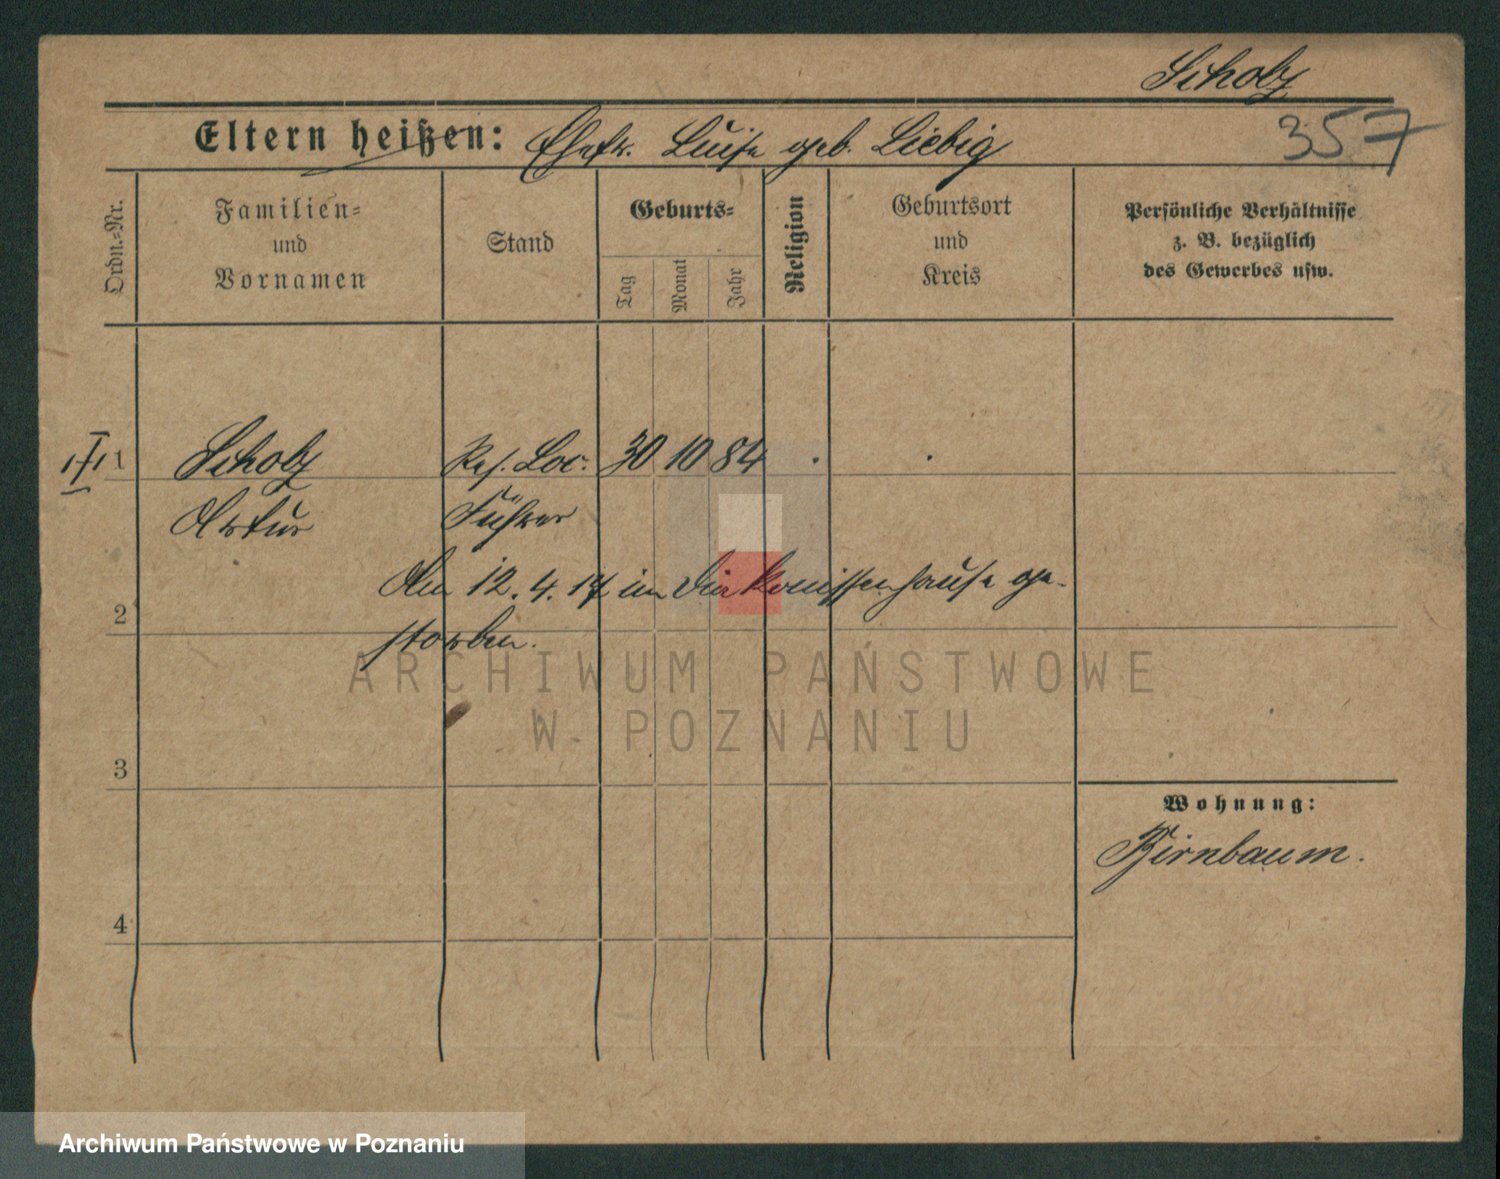 Scholz
Eltern heißen: Ehefr. Luise geb. Liebig
357
Ordn.-Nr.
Familien-
und
Vornamen
Stand
Geburts-
Tag
Monat
Jahr
Religion
Geburtsort
und
Kreis
Persönliche Verhältnisse
z. B. bezüglich
des Gewerbes usw.
1 Scholz Res. Loc. 30 10 84 . .
Artur Führer
Am 12. 4. 17 im Diakonissenhause ge-
2
storben.
ARCHIWUM PAŃSTWOWE
W POZNANIU
3
Wohnung:
Birnbaum.
4
Archiwum Państwowe w Poznaniu